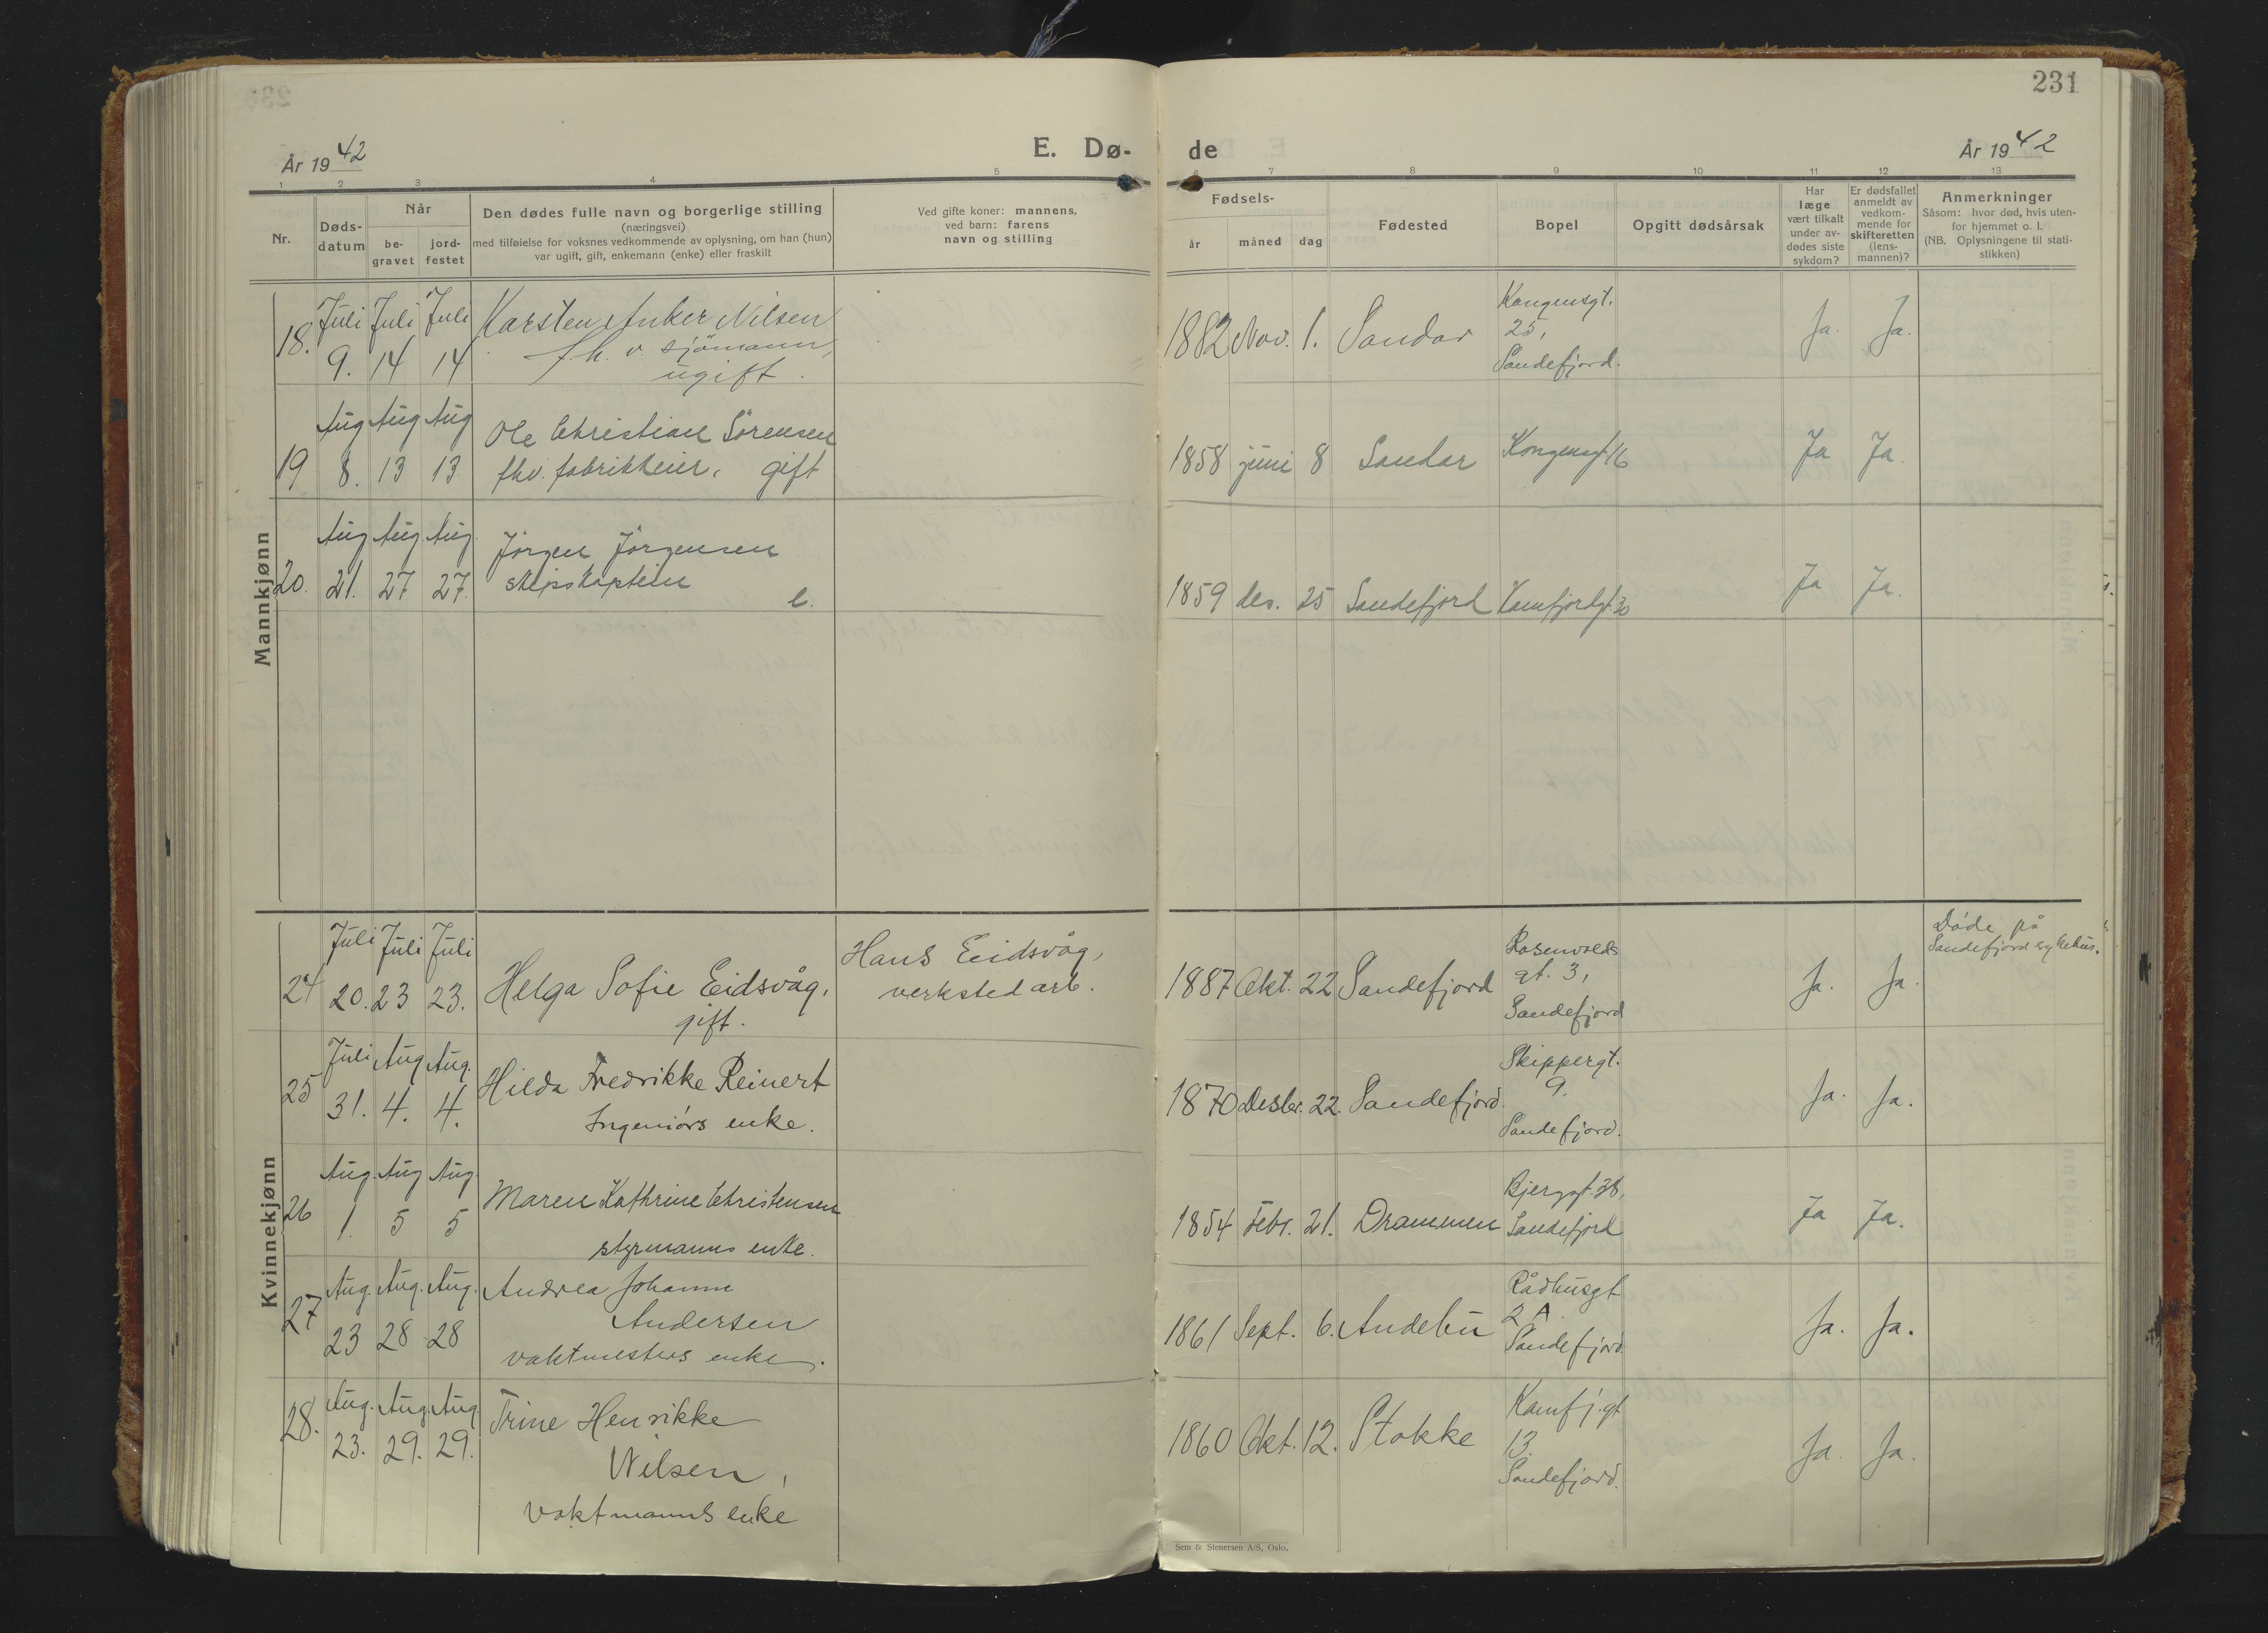 231
År 1942
E. Dø-
de
År 1942
1 2 3 4 5 6 7 8 9 10 11 12 13
Nr.
Døds-
datum
Når
be-
gravet
jord-
festet
Den dødes fulle navn og borgerlige stilling
(næringsvei)
med tilføielse for voksnes vedkommende av oplysning, om han (hun)
var ugift, gift, enkemann (enke) eller fraskilt
Ved gifte koner: mannens,
ved barn: farens
navn og stilling
Fødsels-
år måned dag
Fødested
Bopel
Opgitt dødsårsak
Har
læge
vært tilkalt
under av-
dødes siste
sykdom?
Er dødsfallet
anmeldt av
vedkom-
mende for
skifteretten
(lens-
mannen)?
Anmerkninger
Såsom: hvor død, hvis uten-
for hjemmet o. l.
(NB. Oplysningene til stati-
stikken)
Mannkjønn
18. Juli 9. Juli 14 Juli 14
Karsten Anker Nilsen
f. h. v. sjömann,
ugift.
1882 Nov. 1. Sandar
Kongensgt.
25,
Sandefjord.
Ja. Ja.
19 Aug 8. Aug 13 Aug 13
Ole Christian Sörensen
fhv. fabrikkeier, gift
1858 juni 8 Sandar Kongensgt 16 Ja Ja.
20. Aug 21. Aug 27 Aug. 27.
Jörgen Jörgensen
skipskaptein
e.
1859 des. 25 Sandefjord Kamfjordgt. 30 Ja Ja.
Kvinnekjønn
24 Juli 20. Juli 23 Juli 23.
Helga Sofie Eidsvåg,
gift.
Hans Eidsvåg,
verksted arb.
1887 Okt. 22 Sandefjord
Rosenvolds
gt. 3,
Sandefjord
Ja. Ja.
Döde på
Sandefjord sykehus.
25 Juli 31. Aug 4. Aug. 4.
Hilda Fredrikke Reinert
Ingeniörs enke.
1870 Desbr. 22. Sandefjord.
Skippergt.
9.
Sandefjord.
Ja. Ja.
26 Aug. 1. Aug 5 Aug. 5
Maren Kathrine Christensen
styrmanns enke.
1854 Febr. 21. Drammen
Bjerggt. 38,
Sandefjord
Ja Ja.
27 Aug. 23 Aug. 28 Aug. 28
Andrea Johanne
Andersen
vaktmesters enke.
1861 Sept. 6. Andebu
Rådhusgt
2 A.
Sandefjord
Ja. Ja.
28. Aug. 23. Aug. 29. Aug. 29.
Trine Henrikke
Nilsen,
Vaktmanns enke
1860 Okt. 12. Stokke
Kamfj. gt
13.
Sandefjord.
Ja. Ja.
Sem & Stenersen A/S, Oslo.